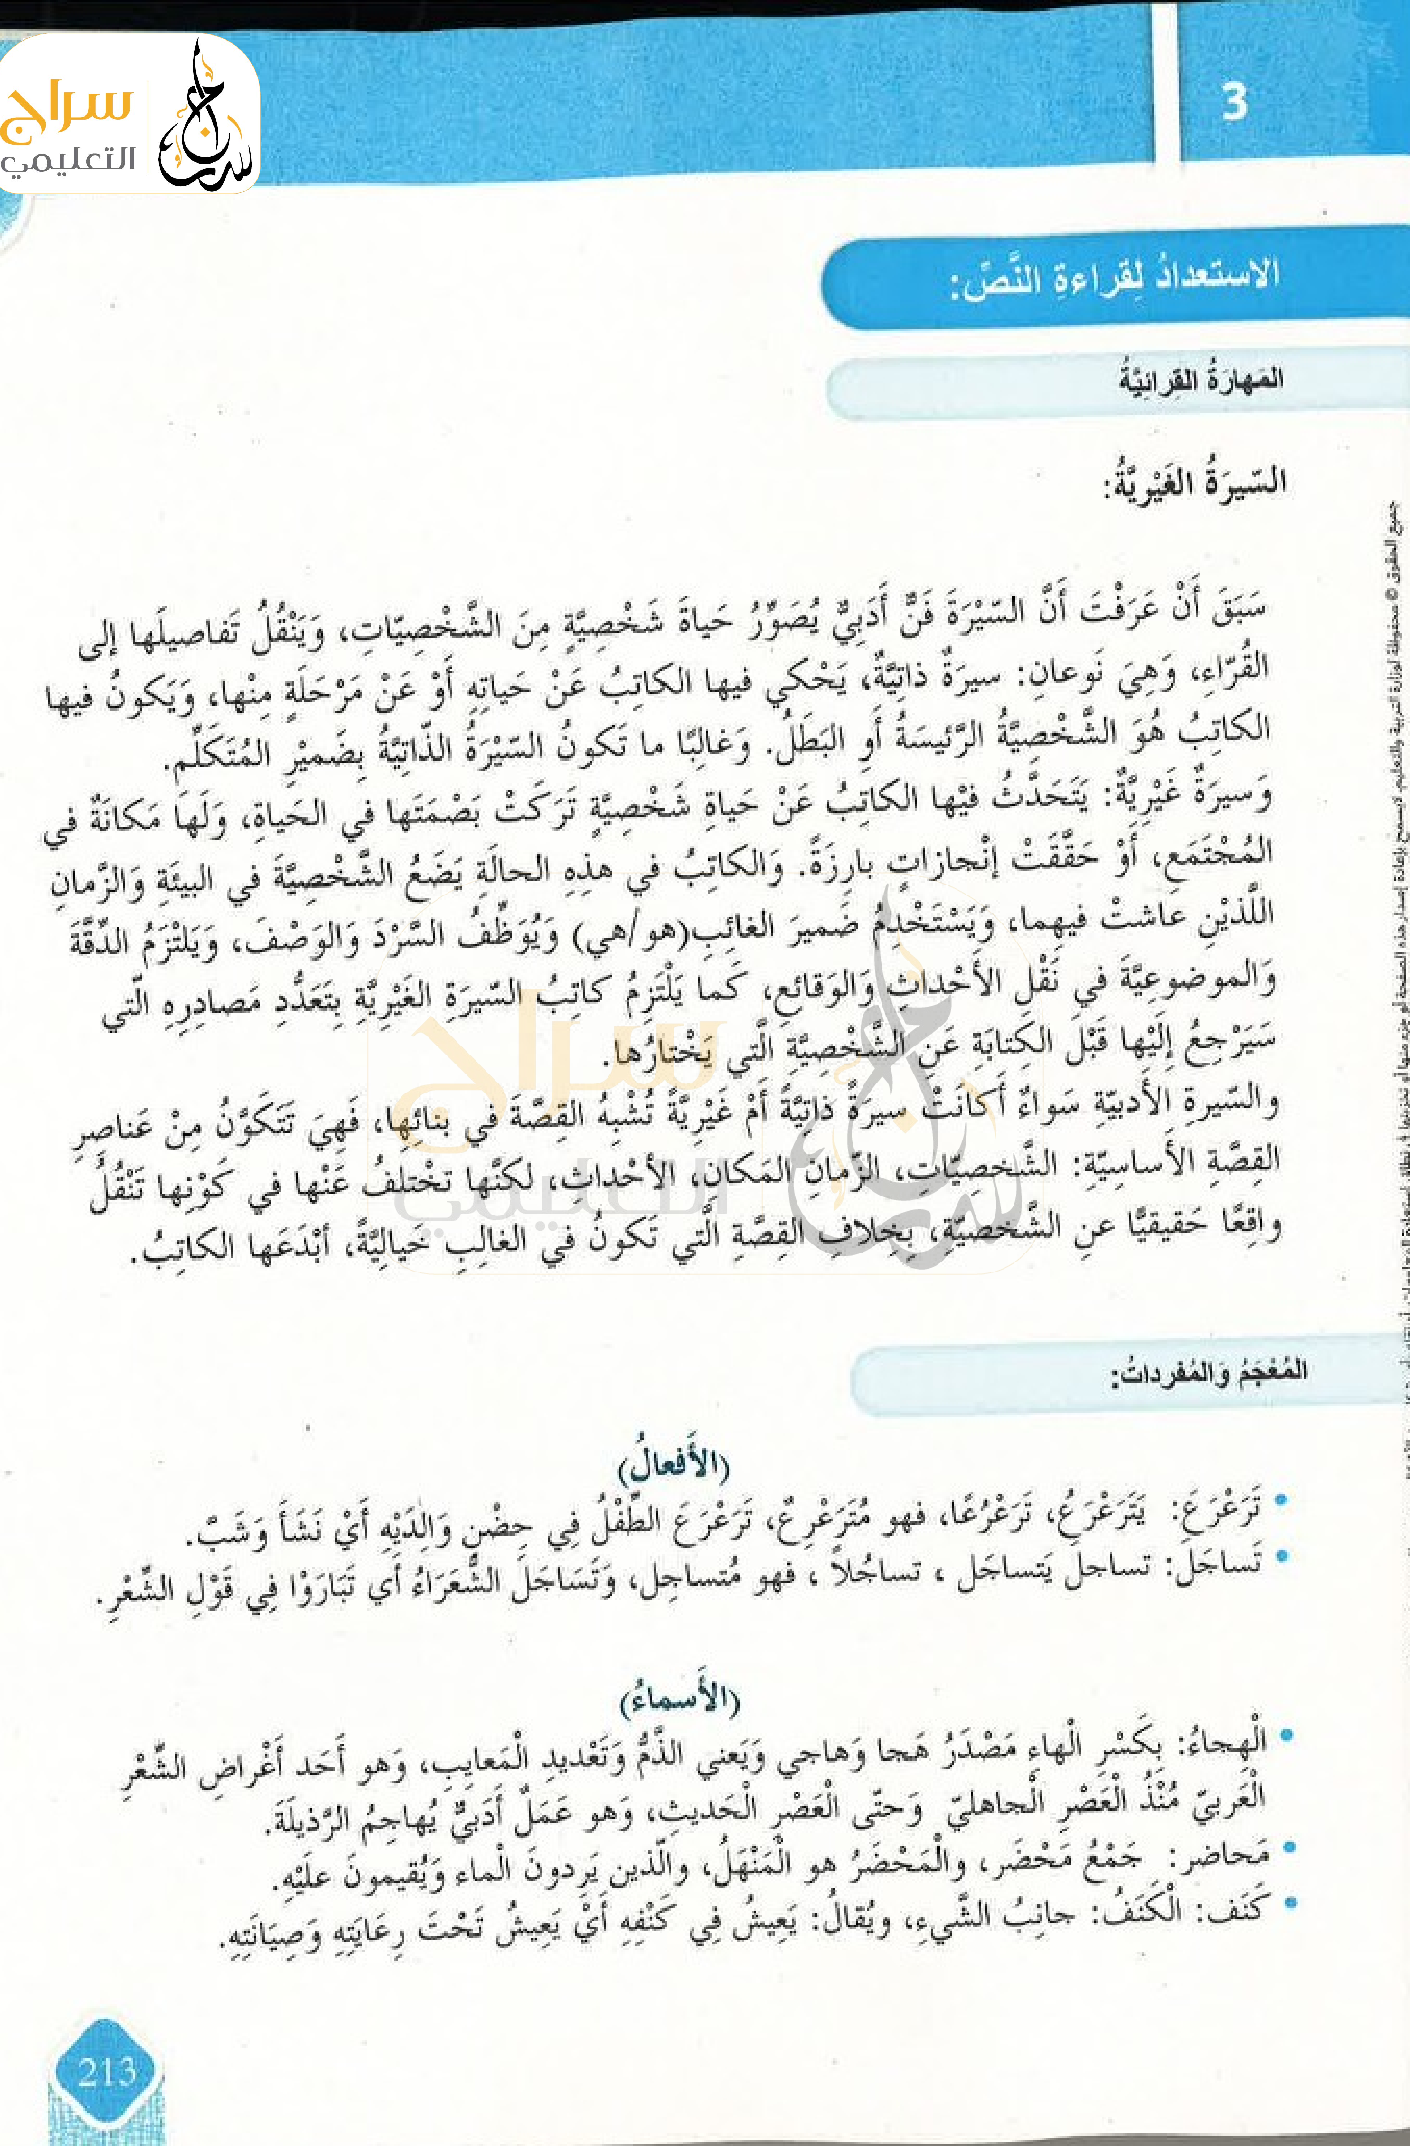 3
سراج
التعليمي
الاستعدادُ لِقراءةِ النَّصِّ:
المَهارَةُ القِرائِيَّةُ
السّيرَةُ الغَيْرِيَّةُ:
سَبَقَ أَنْ عَرَفْتَ أَنَّ السّيْرَةَ فَنٌّ أَدَبِيٌّ يُصَوِّرُ حَياةَ شَخْصِيَّةٍ مِنَ الشَّخْصِيّاتِ، وَيَنْقُلُ تَفاصيلَها إلى
القُرّاءِ، وَهِيَ نَوعانِ: سيرَةٌ ذاتِيَّةٌ، يَحْكي فيها الكاتِبُ عَنْ حَياتِهِ أَوْ عَنْ مَرْحَلَةٍ مِنْها، وَيَكونُ فيها
الكاتِبُ هُوَ الشَّخْصِيَّةُ الرَّئيسَةُ أَوِ البَطَلُ. وَغالِبًا ما تَكونُ السّيْرَةُ الذّاتِيَّةُ بِضَميْرِ المُتَكَلّم.
وَسيرَةٌ غَيْرِيَّةٌ: يَتَحَدَّثُ فيْها الكاتِبُ عَنْ حَياةِ شَخْصِيَّةٍ تَرَكَتْ بَصْمَتَها في الحَياةِ، وَلَهَا مَكانَةٌ في
المُجْتَمَعِ، أَوْ حَقَّقَتْ إنْجازاتٍ بارِزَةً. وَالكاتِبُ في هذِهِ الحالَةِ يَضَعُ الشَّخْصِيَّةَ في البيئَةِ وَالزَّمانِ
اللَّذيْنِ عاشتْ فيهِما، وَيَسْتَخْدِمُ ضَميرَ الغائِبِ(هو/هي) وَيُوَظِّفُ السَّرْدَ وَالوَصْفَ، وَيَلتْزَمُ الدِّقَّةَ
وَالموضوعِيَّةَ في نَقْلِ الأَحْداثِ وَالوَقائعِ، كَما يَلْتَزِمُ كاتِبُ السّيرَةِ الغَيْرِيَّةِ بِتَعَدُّدِ مَصادِرِهِ الّتي
سَيَرْجِعُ إلَيْها قَبْلَ الكِتابَةِ عَنِ الشَّخْصِيَّةِ الَّتي يَخْتارُها.
والسّيرةِ الأدبيّةِ سَواءٌ أَكانَتْ سيرَةٌ ذاتِيَّةً أَمْ غَيْرِيَّةً تُشْبِهُ القِصَّةَ في بنائِها، فَهِيَ تَتَكَوَّنُ مِنْ عَناصِرِ
القِصَّةِ الأساسيّةِ: الشَّخصِيّاتِ، الزّمانِ المَكانِ، الأحْداثِ، لكنَّها تخْتلفُ عَنْها في كَوْنِها تَنْقُلُ
واقِعًا حَقيقيًّا عنِ الشَّخصيّةِ، بِخِلافِ القِصَّةِ الَّتي تَكونُ في الغالِبِ خَياليَّةً، أبْدَعَها الكاتِبُ.
المُعْجَمُ وَالمُفرداتُ:
(الأَفعالُ)
• تَرَعْرَعَ: يَتَرَعْرَعُ، تَرَعْرُعًا، فهو مُتَرَعْرِعٌ، تَرَعْرَعَ الطِّفْلُ فِي حِضْنِ وَالِدَيْهِ أَيْ نَشَأَ وَشَبَّ.
• تَساجَلَ: تساجلَ يَتساجَل ، تساجُلاً ، فهو مُتساجِل، وَتَسَاجَلَ الشُّعَرَاءُ أَي تَبَارَوْا فِي قَوْلِ الشِّعْرِ.
(الأَسماءُ)
• الْهِجاءُ: بِكَسْرِ الْهاءِ مَصْدَرُ هَجا وَهاجي وَيَعني الذَّمُّ وَتَعْديدِ الْمَعايِبِ، وَهو أَحَد أَغْراضِ الشِّعْرِ
الْعَربيّ مُنْذُ الْعَصْرِ الْجاهليّ وَحتّى الْعَصْرِ الْحَديثِ، وَهو عَمَلٌ أَدَبيٌّ يُهاجِمُ الرَّذيلَةَ.
• مَحاضر: جَمْعُ مَحْضَر، والْمَحْضَرُ هو الْمَنْهَلُ، والّذين يَرِدونَ الْماء وَيُقيمونَ علَيْهِ.
• كَنَف: الْكَنَفُ: جانِبُ الشَّيءِ، ويُقالُ: يَعِيشُ فِي كَنْفِهِ أَيْ يَعِيشُ تَحْتَ رِعَايَتِهِ وَصِيَانَتِهِ.
213